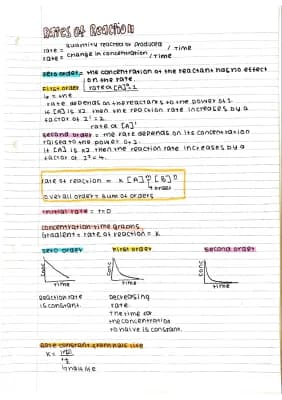 Rates of Reaction
rate = quantity reacted or produced / time
rate = change in concentration / time
zero order = the concentration of the reactant has no effect
on the rate.
First order rate α [A]^1
↳ the
rate depends on the reactants to the power of 1.
if [A] is x2 then the reaction rate increases by a
factor of 2^1 = 2.
rate α [A]^2
second order = the rate depends on its concentration
raised to the power of 2.
if [A] is x2 then the reaction rate increases by a
factor of 2^2 = 4.
rate of reaction = K [A]^m [B]^n
↳ order
overall order = sum of orders
initial rate = t=0
concentration-time graphs
Gradient = rate of reaction = K
zero order first order second order
conc conc conc
time time time
Reaction rate Decreasing
is constant. rate.
The time for
the concentration
to halve is constant.
Rate constant from half life
K = ln(2)
t½
↳ half life